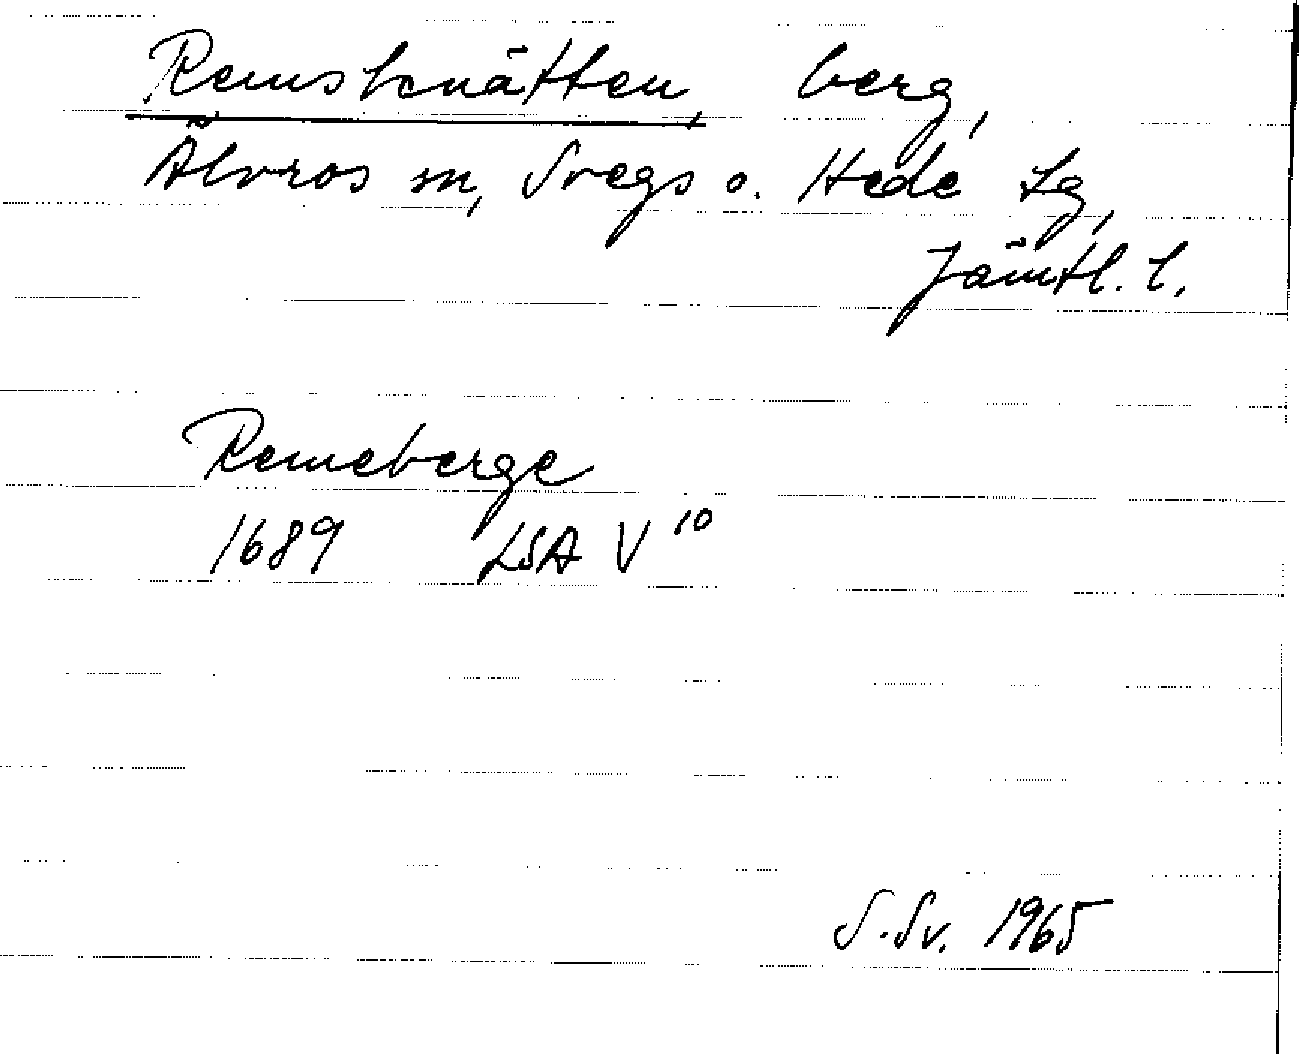 Remsknätten, berg,
Älvros sn, Svegs o. Hede tg,
Jämtl. l.
Remeberge
1689 LSA V 10
S. Sv. 1965